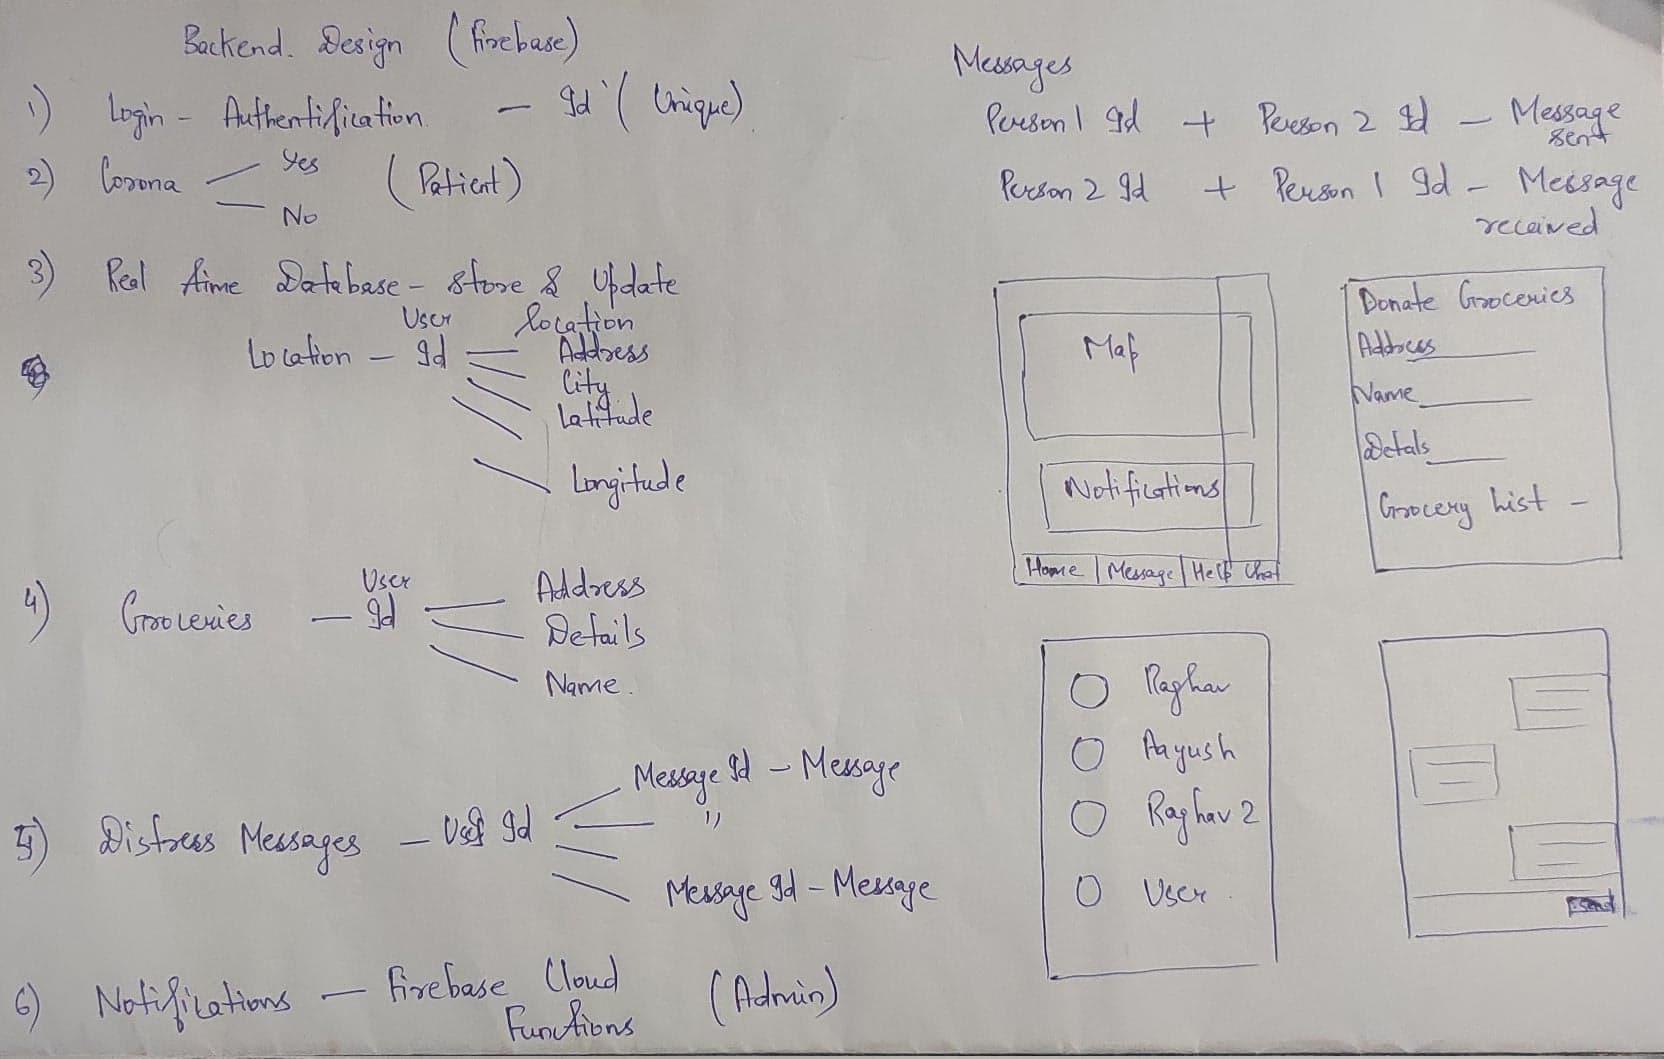 Backend. Design (firebase)
1) Login - Authentification - Id (Unique)
2) Corona Yes (Patient)
No
3) Real time Database - Store & Update
User location
Location - Id Address
City
Latitude
Longitude
4) Groceries - User Id Address
Details
Name.
5) Distress Messages - User Id Message Id - Message
"
Message Id - Message
6) Notifications - Firebase Cloud Functions (Admin)
Messages
Person 1 Id + Person 2 Id - Message sent
Person 2 Id + Person 1 Id - Message received
Map
Notifications
Home | Message | Help Chat
Donate Groceries
Address
Name
Detals
Grocery List -
Raghav
Aayush
Raghav 2
User
Send